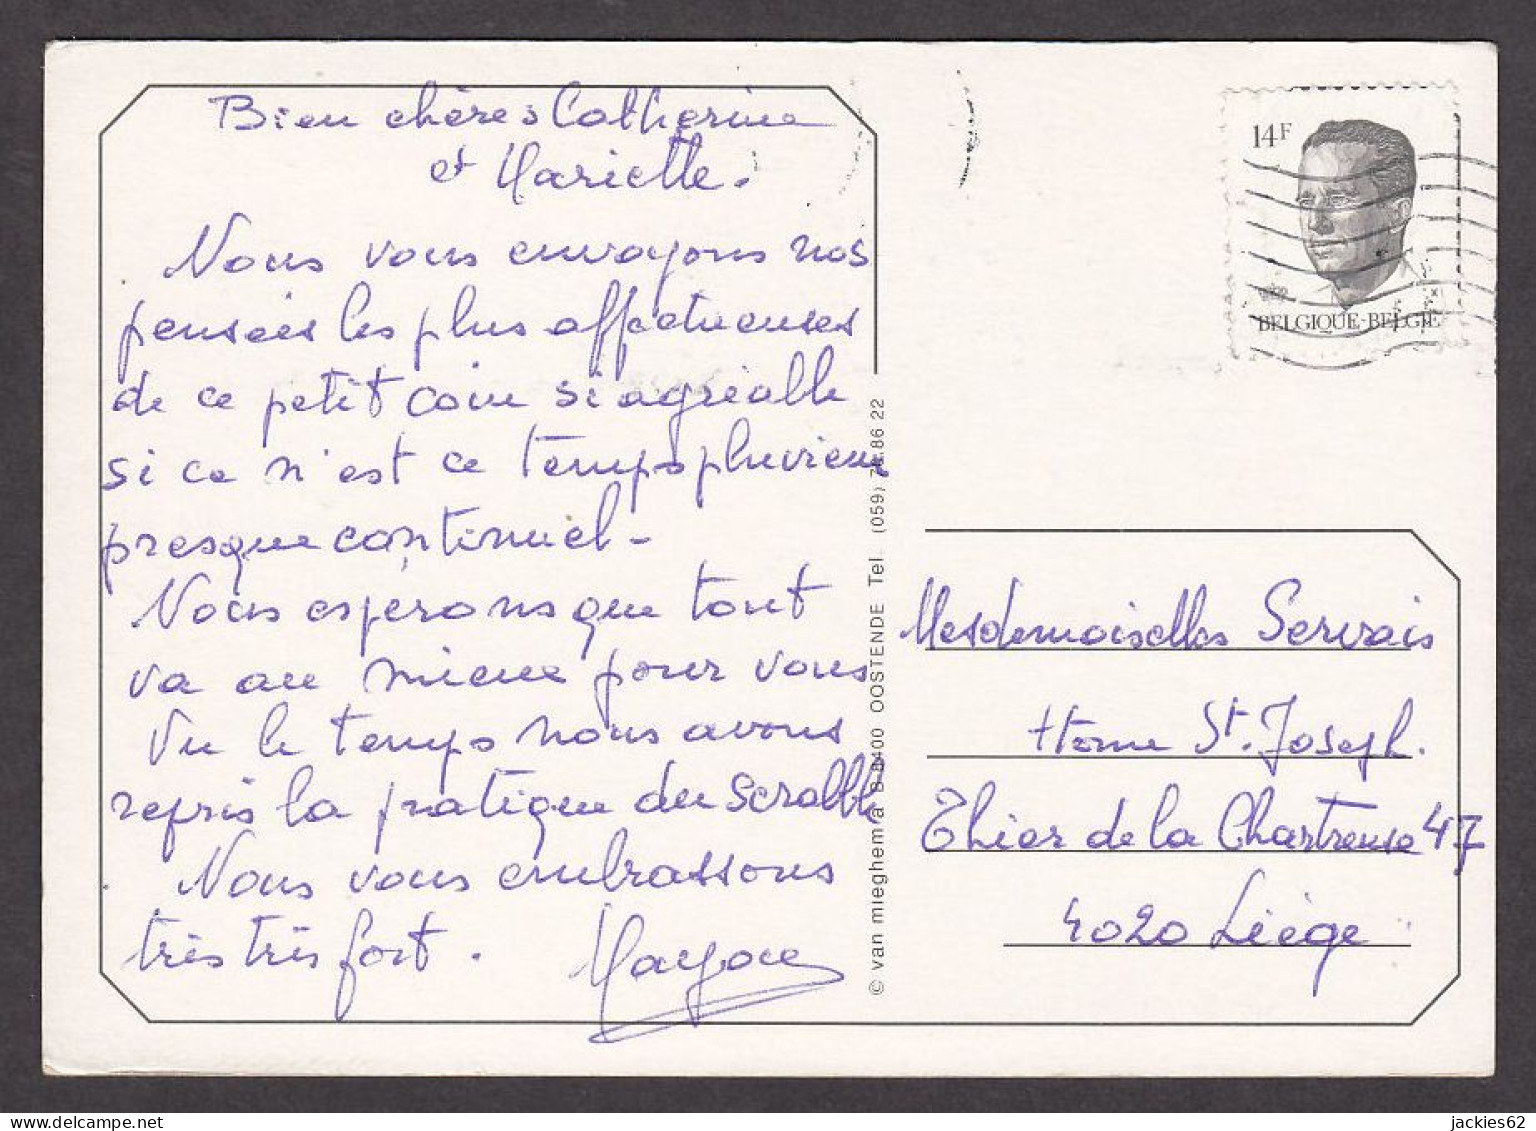 Bien chères Catherine
et Mariette.
Nous vous envoyons nos
pensées les plus affectueuses
de ce petit coin si agréable
si ce n'est ce temps pluvieux
presque continuel -
Nous espérons que tout
va au mieux pour vous
Vu le temps nous avons
repris la pratique du scrabble
Nous vous embrassons
très très fort.
© van mieghem a B 8400 OOSTENDE Tel (059) 86 22
14F
BELGIQUE-BELGIË
Mesdemoiselles Servais
Home St. Joseph.
Thier de la Chartreuse 47
4020 Liège
jackies62